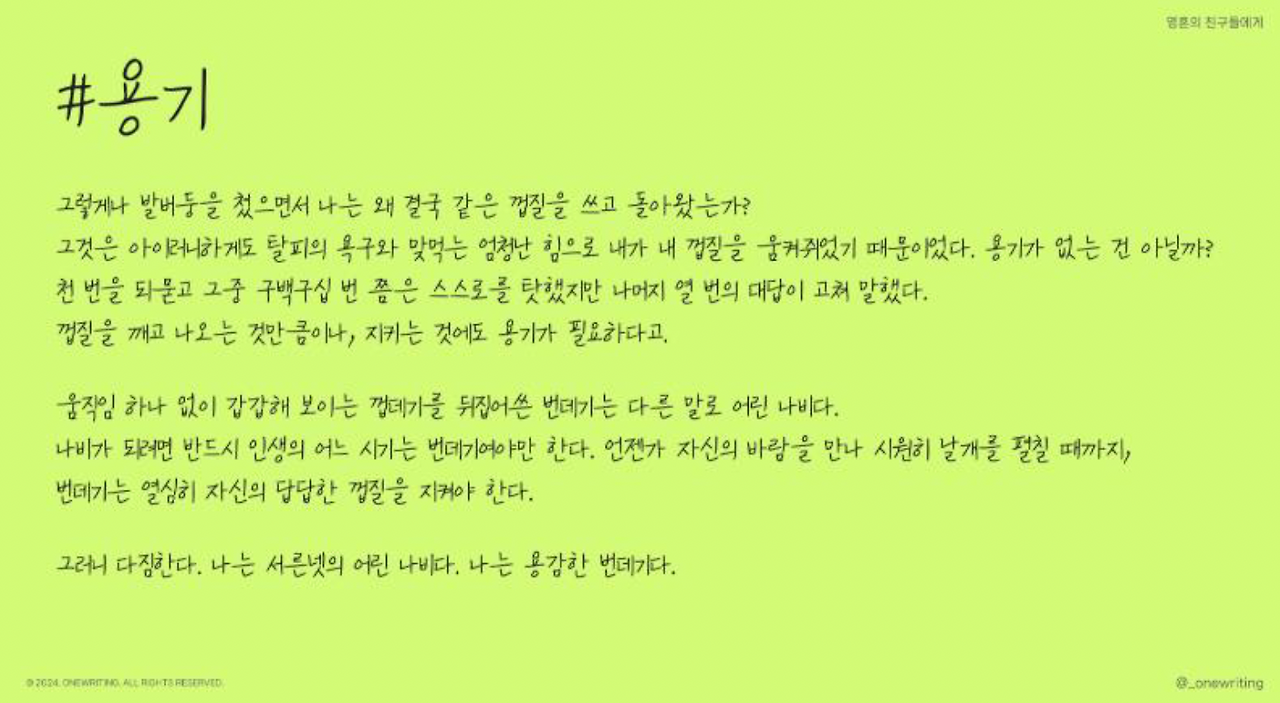 영혼의 친구들에게
#용기
그렇게나 발버둥을 쳤으면서 나는 왜 결국 같은 껍질을 쓰고 돌아왔는가?
그것은 아이러니하게도 탈피의 욕구와 맞먹는 엄청난 힘으로 내가 내 껍질을 움켜쥐었기 때문이었다. 용기가 없는 건 아닐까?
천 번을 되묻고 그중 구백구십 번 쯤은 스스로를 탓했지만 나머지 열 번의 대답이 고쳐 말했다.
껍질을 깨고 나오는 것만큼이나, 지키는 것에도 용기가 필요하다고.
움직임 하나 없이 갑갑해 보이는 껍데기를 뒤집어쓴 번데기는 다른 말로 어린 나비다.
나비가 되려면 반드시 인생의 어느 시기는 번데기여야만 한다. 언젠가 자신의 바람을 만나 시원히 날개를 펼칠 때까지,
번데기는 열심히 자신의 답답한 껍질을 지켜야 한다.
그러니 다짐한다. 나는 서른넷의 어린 나비다. 나는 용감한 번데기다.
© 2024. ONEWRITING. ALL RIGHTS RESERVED.
@_onewriting